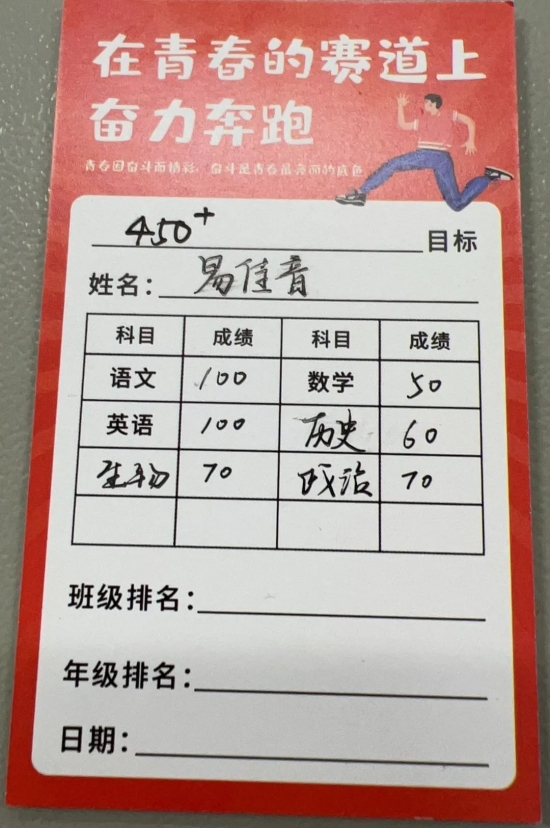 在青春的赛道上
奋力奔跑
青春因奋斗而精彩，奋斗是青春最亮丽的底色
450+ 目标
姓名：易佳音
科目 成绩 科目 成绩
语文 100 数学 50
英语 100 历史 60
生物 70 政治 70
班级排名：
年级排名：
日期：